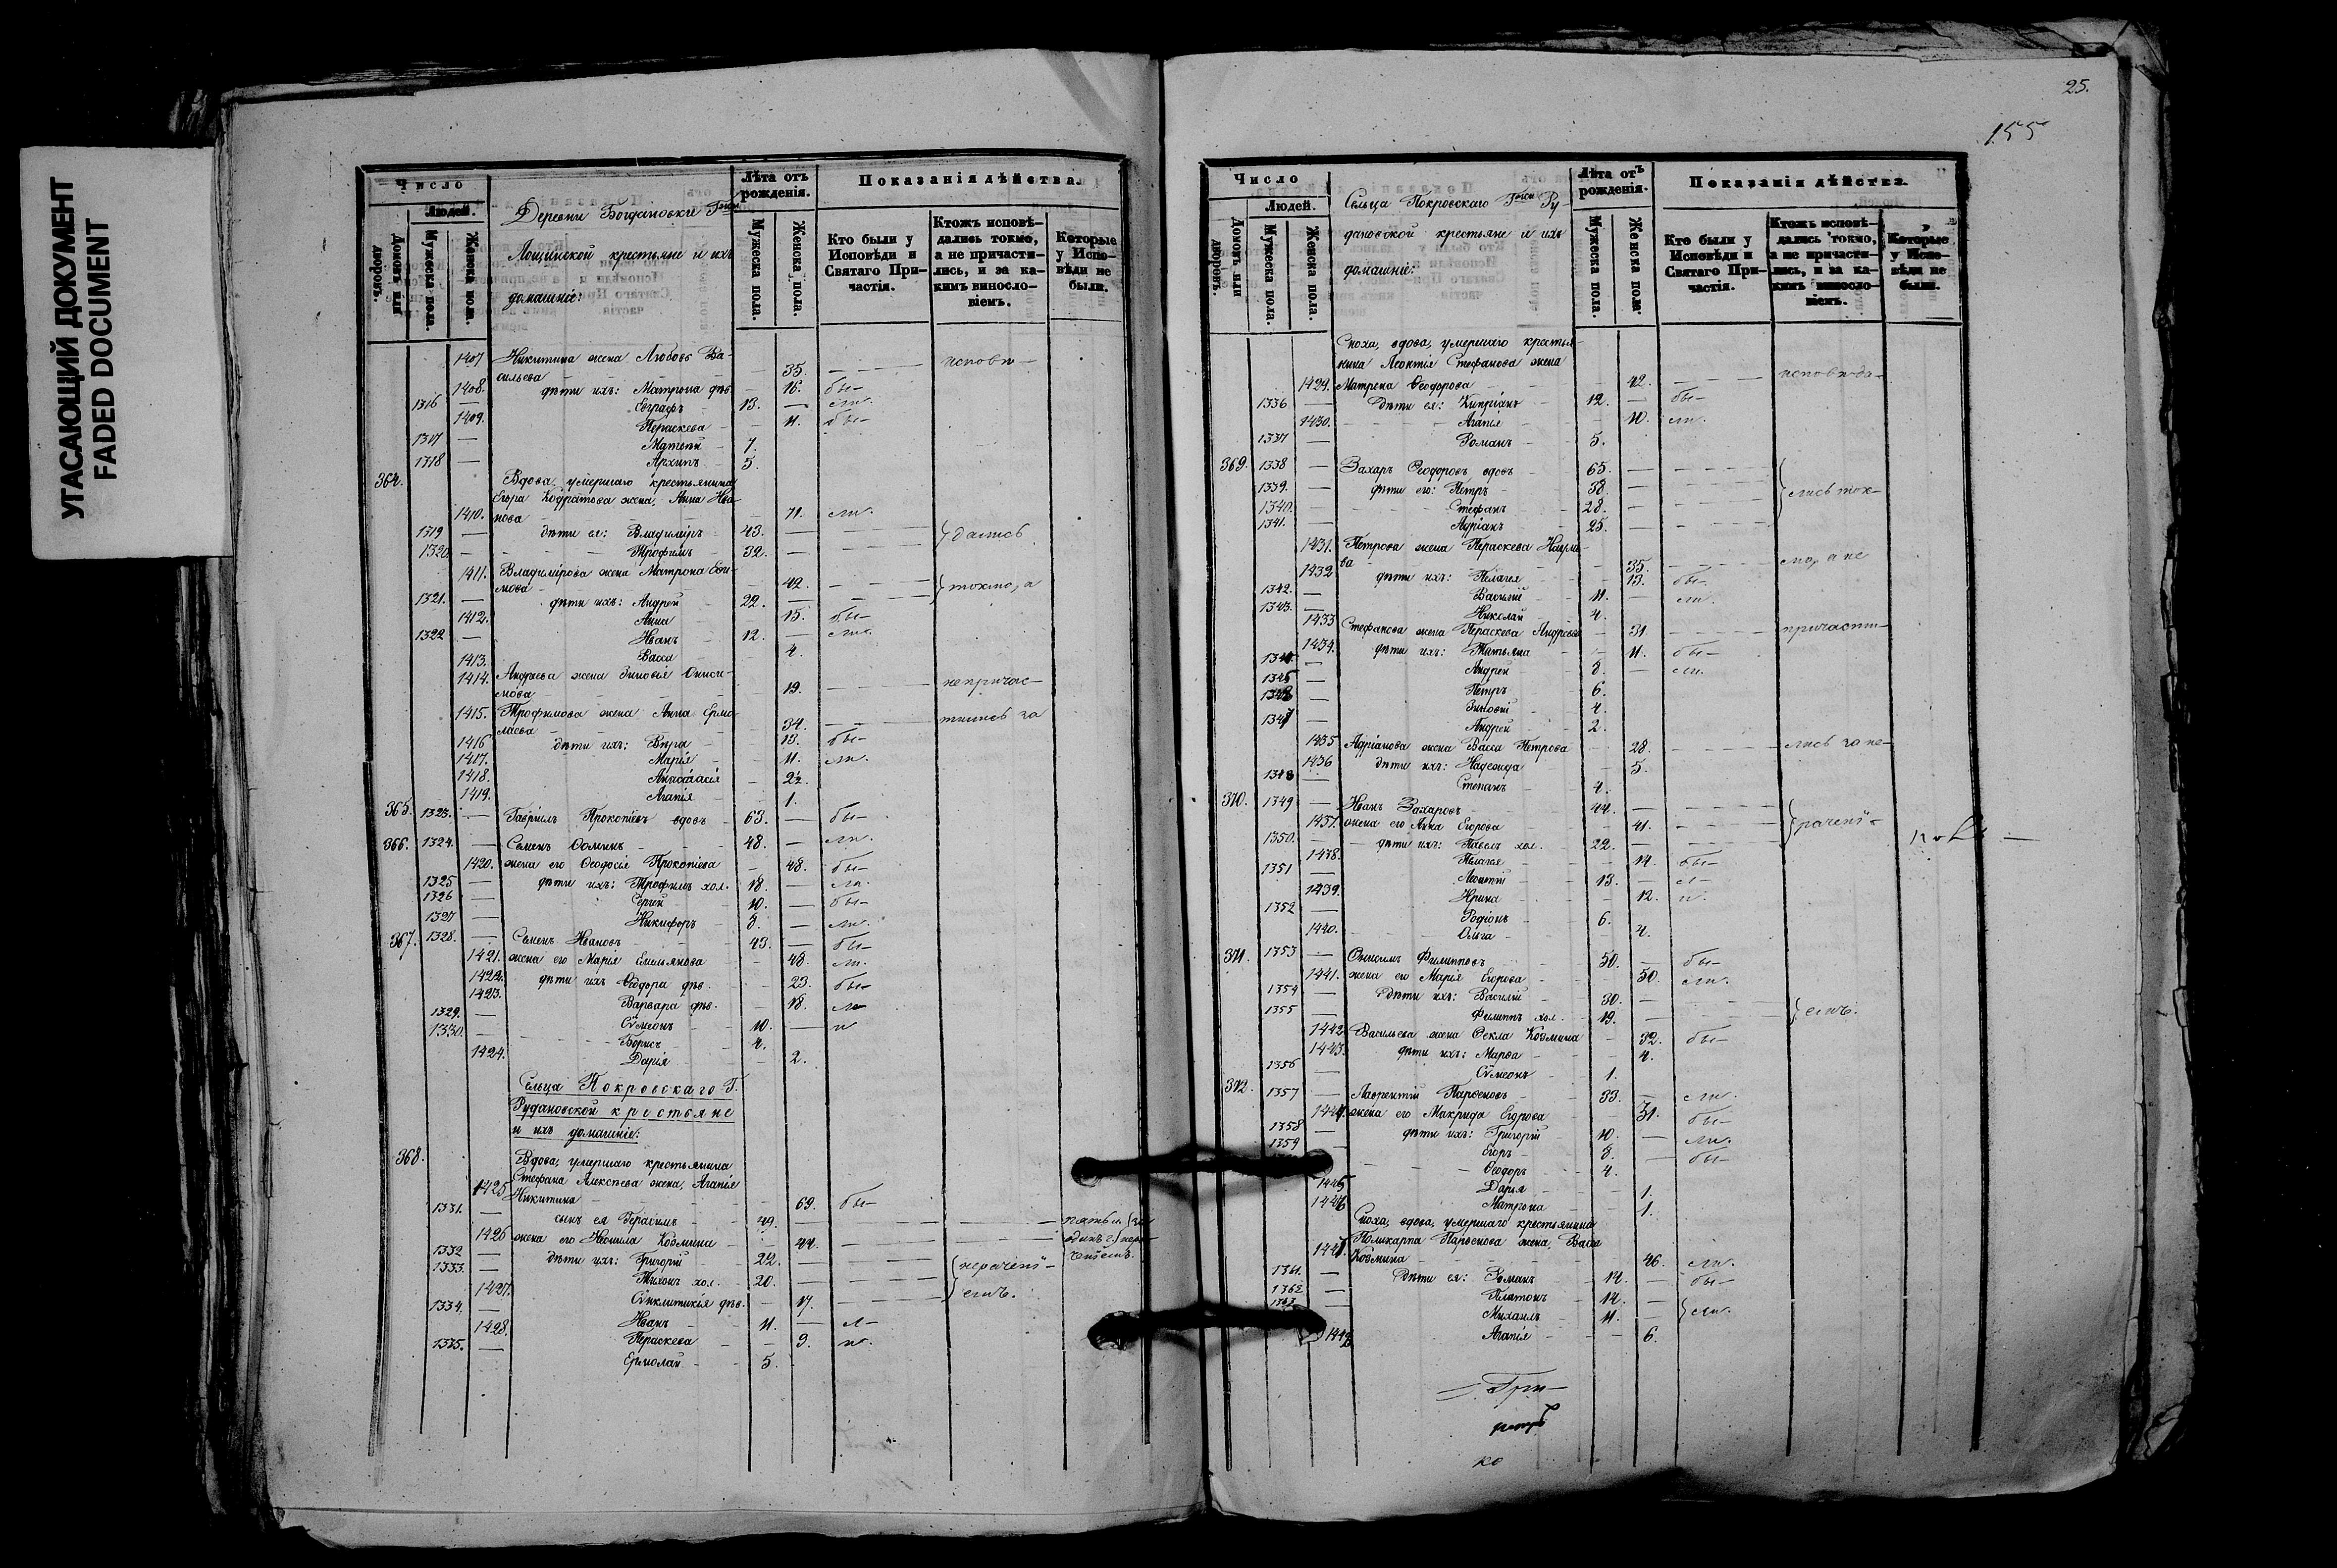 УГАСАЮЩИЙ ДОКУМЕНТ
FADED DOCUMENT
25.
155
Число
Людей.
Домовъ или дворовъ.
Мужеска пола.
Женска пола.
Деревни Богдановки Г-жи
Лощинской крестьяне и ихъ
домашніе:
Лѣта отъ рожденія.
Мужеска пола.
Женска пола.
Показанія дѣйства.
Кто были у Исповѣди и Святаго При-
частія.
Ктожъ исповѣ-
дались токмо,
а не причасти-
лись, и за ка-
кимъ винosло-
віемъ.
Которые
у Испо-
вѣди не
были.
1407 Никитина жена Любовь Ва-
сильева 35. исповѣ-
1408. дѣти ихъ: Матрона дѣв. 16. бы-
1316 Евграфъ 13. ли.
1409. Параскева 11. бы-
1317 Матвѣй 7.
1318 Архипъ 5.
364. Вдова, умершаго крестьянина
Егора Кодратова жена, Анна Ива-
1410. нова 71. ли.
1319 дѣти ея: Владиміръ 43. дались
1320. Трофимъ 32.
1411. Владимірова жена Матрона Ефи-
мова 42. токмо, а
1321. дѣти ихъ: Андрей 22.
1412. Анна 15. бы-
1322 Иванъ 12. ли.
1413. Васса 4.
1414. Андреева жена Зиновія Ониси-
мова 19. не причас-
1415. Трофимова жена Анна Ермо-
лаева 34. тились за
1416 дѣти ихъ: Вѣра 13. бы-
1417. Марія 11. ли.
1418. Анастасія
1419. Агапія 1.
365. 1323. Гавріилъ Прокопіевъ вдовъ 63. бы-
366. 1324. Семенъ Фоминъ 48. ли.
1420. жена его Феодосія Прокопіева 48. бы-
1325 дѣти ихъ: Трофимъ хол. 18. ли.
1326 Сергѣй 10. бы-
1327 Никифоръ 8. ли.
367. 1328. Семенъ Ивановъ 43. бы-
1421. жена его Марія Емельянова 43. ли.
1422. дѣти ихъ Феодора дѣв. 23. бы-
1423. Варвара дѣв. 18. ли
1329. Сѵмеонъ 10.
1330. Борисъ 4.
1424. Дарія 2.
Сельца Покровскаго Г.
Рудановской крестьяне
и ихъ домашніе:
368. Вдова, умершаго крестьянина
Стефана Алексѣева жена, Агапія
1425 Никитина 69. бы-
1331. сынъ ея Герасимъ 49.
1426 жена его Неонила Козмина 44.
1332 дѣти ихъ: Григорій 22. нерачені-
1333. Тихонъ хол. 20.
1427. Сѵнклитикія дѣв. 17. емъ.
1334. Иванъ 11. л-
1428. Параскева 9. и.
1335. Ермолай 5.
Число
Людей.
Домовъ или дворовъ.
Мужеска пола.
Женска пола.
Сельца Покровскаго Г-жи Ру-
дановской крестьяне и ихъ
домашніе:
Лѣта отъ рожденія.
Мужеска пола.
Женска пола.
Показанія дѣйства.
Кто были у
Исповѣди и
Святаго При-
частія.
Ктожъ исповѣ-
дались токмо,
а не причасти-
лись, и за ка-
кимъ винosло-
віемъ.
Которые
у Испо-
вѣди не
были.
Сноха, вдова, умершаго крестья-
нина Леонтія Стефанова жена
1429. Матрена Феодорова 42. исповѣда-
1336 дѣти ея: Кипріанъ 12. бы-
1430. Агапія 10. ли.
1337 Романъ 5.
369. 1338 Захаръ Феодоровъ вдовъ 65.
1339. дѣти его: Петръ 38. лись ток-
1340. Стефанъ 28.
1341. Адріанъ 25.
1431. Петрова жена Параскева Наумо-
ва 35. мо, а не
1432 дѣти ихъ: Пелагея 13. бы-
1342. Василій 11. ли
1343. Николай 4.
1433 Стефанова жена Параскева Андреева 31. причасти-
1434. дѣти ихъ: Татьяна 11. бы-
1344. Андрей 8. ли.
1345 Петръ 6.
Зиновій 4.
1347 Андрей 2.
1435 Адріанова жена Васса Петрова 28. лись за не-
1436 дѣти ихъ: Надежда 5.
1348 Степанъ 4.
370. 1349 Иванъ Захаровъ 44. рачені-
1437. жена его Анна Егорова 41.
1350. дѣти ихъ: Павелъ хол. 22.
1438. Пелагея 14. бы-
1351 Леонтій 13. л-
1439. Ирина 12. и.
1352 Родіонъ 6.
1440. Ольга 4.
371. 1353 Онисимъ Филипповъ 50. бы-
1441. жена его Марія Егорова 50. ли.
1354 дѣти ихъ: Василій 30.
1355 Филиппъ хол. 19. емъ.
1442. Васильева жена Фекла Козмина 32. бы-
1443. дѣти ихъ: Марфа 4.
1356 Сѵмеонъ 1.
372. 1357 Лаврентій Парфеновъ 33. ли.
1444. жена его Макрида Егорова 31. бы-
1358 дѣти ихъ: Григорій 10. ли.
1359 Егоръ 8. бы-
Феодоръ 4.
1445 Дарья 1.
1446 Матрона 1.
Сноха, вдова, умершаго крестьянина
Поликарпа Парфенова жена, Васса
Козмина 46. ли.
1361. дѣти ея: Романъ 14. бы-
1362 Платонъ 14.
1363 Михаилъ 11. ли.
Агапія 6.